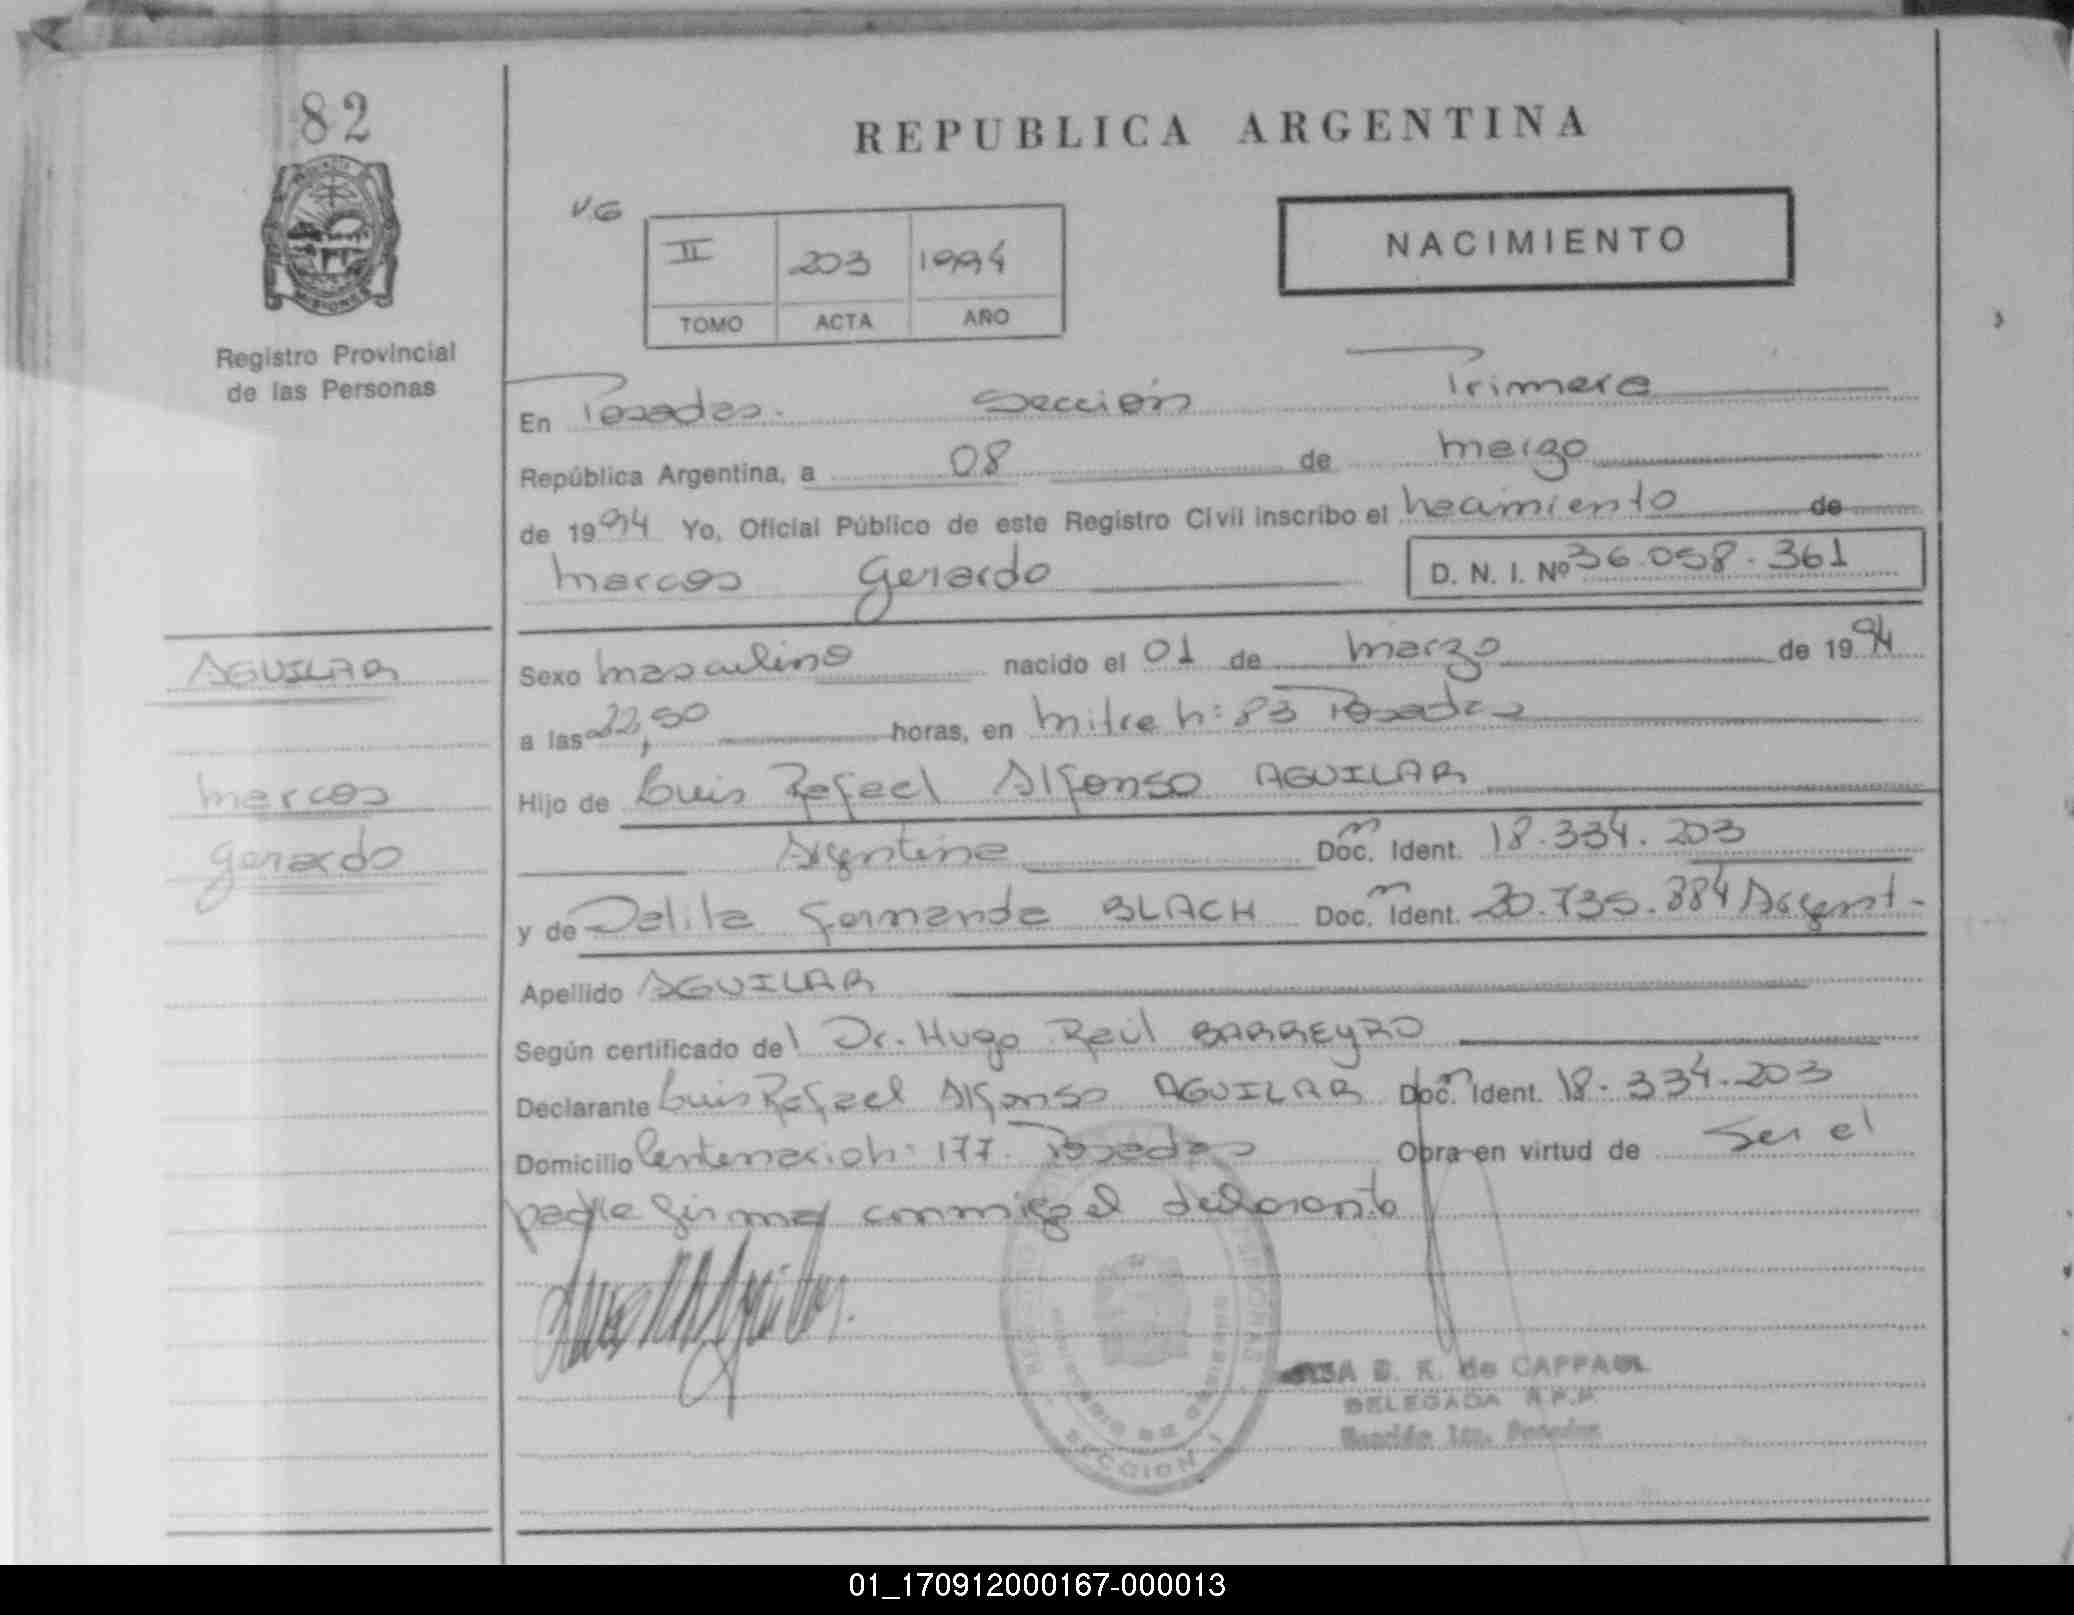 82
REPUBLICA ARGENTINA
MISIONES
Registro Provincial
de las Personas
V.G
II 203 1994
TOMO ACTA AÑO
NACIMIENTO
En Posadas. Sección Primera
República Argentina, a 08 de marzo
de 1994 Yo, Oficial Público de este Registro Civil inscribo el nacimiento de
Marcos Gerardo D. N. I. Nº 36.058.361
AGUILAR
Marcos
Gerardo
Sexo masculino nacido el 01 de marzo de 1994
a las 22,50 horas, en Mitre n: 83 Posadas
Hijo de Luis Rafael Alfonso AGUILAR
Argentina Doc. Ident. 18.334.203
y de Dalila Fernanda BLACH Doc. Ident. 20.735.884 Argent-
Apellido AGUILAR
Según certificado del Dr. Hugo Raúl BARREYRO
Declarante Luis Rafael Alfonso AGUILAR Doc. Ident. 18.334.203
Domicilio Centenario n: 177. Posadas Obra en virtud de ser el
padre firma conmigo el declarante
B. K. de
DELEGADA R.P.P.
Sección 1ra. Posadas
SECCION 1
01_170912000167-000013